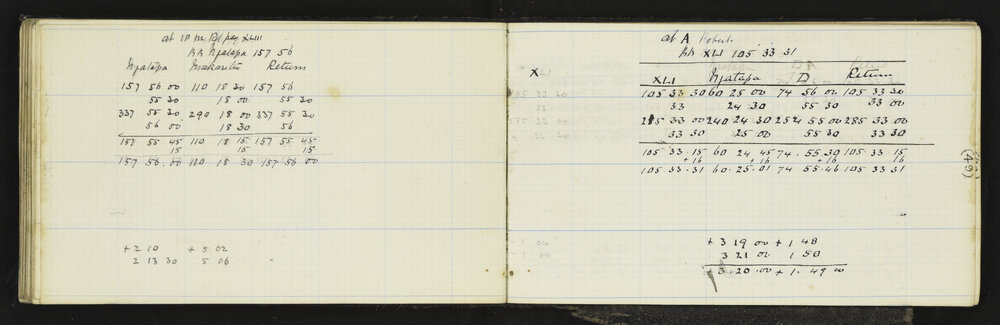 at IP m. Rd peg XLIII
RR Njatapa 157 56
Njatapa Makaretu Return
157 56 00 110 18 30 157 56
55 30 18 00 55 30
337 55 30 290 18 00 337 55 30
56 00 18 30 56
157 55 45 110 18 15 157 55 45
15 15 15
157 56 00 110 18 30 157 56 00
+ 2 10 + 5 02
2 13 30 5 06
at A
XLI 105 33 31
XLI
XLI Njatapa D Return
105 33 30 60 25 00 74 56 00 105 33 30
33 24 30 55 30 33 00
285 33 00 240 24 30 254 55 00 285 33 00
33 30 25 00 55 30 33 30
105 33 15 60 24 45 74 55 30 105 33 15
+ 16 + 16 + 16 16
105 33 31 60 25 01 74 55 46 105 33 31
(49)
+ 3 19 00 + 1 48
3 21 00 1 50
3 20 00 + 1 49 00